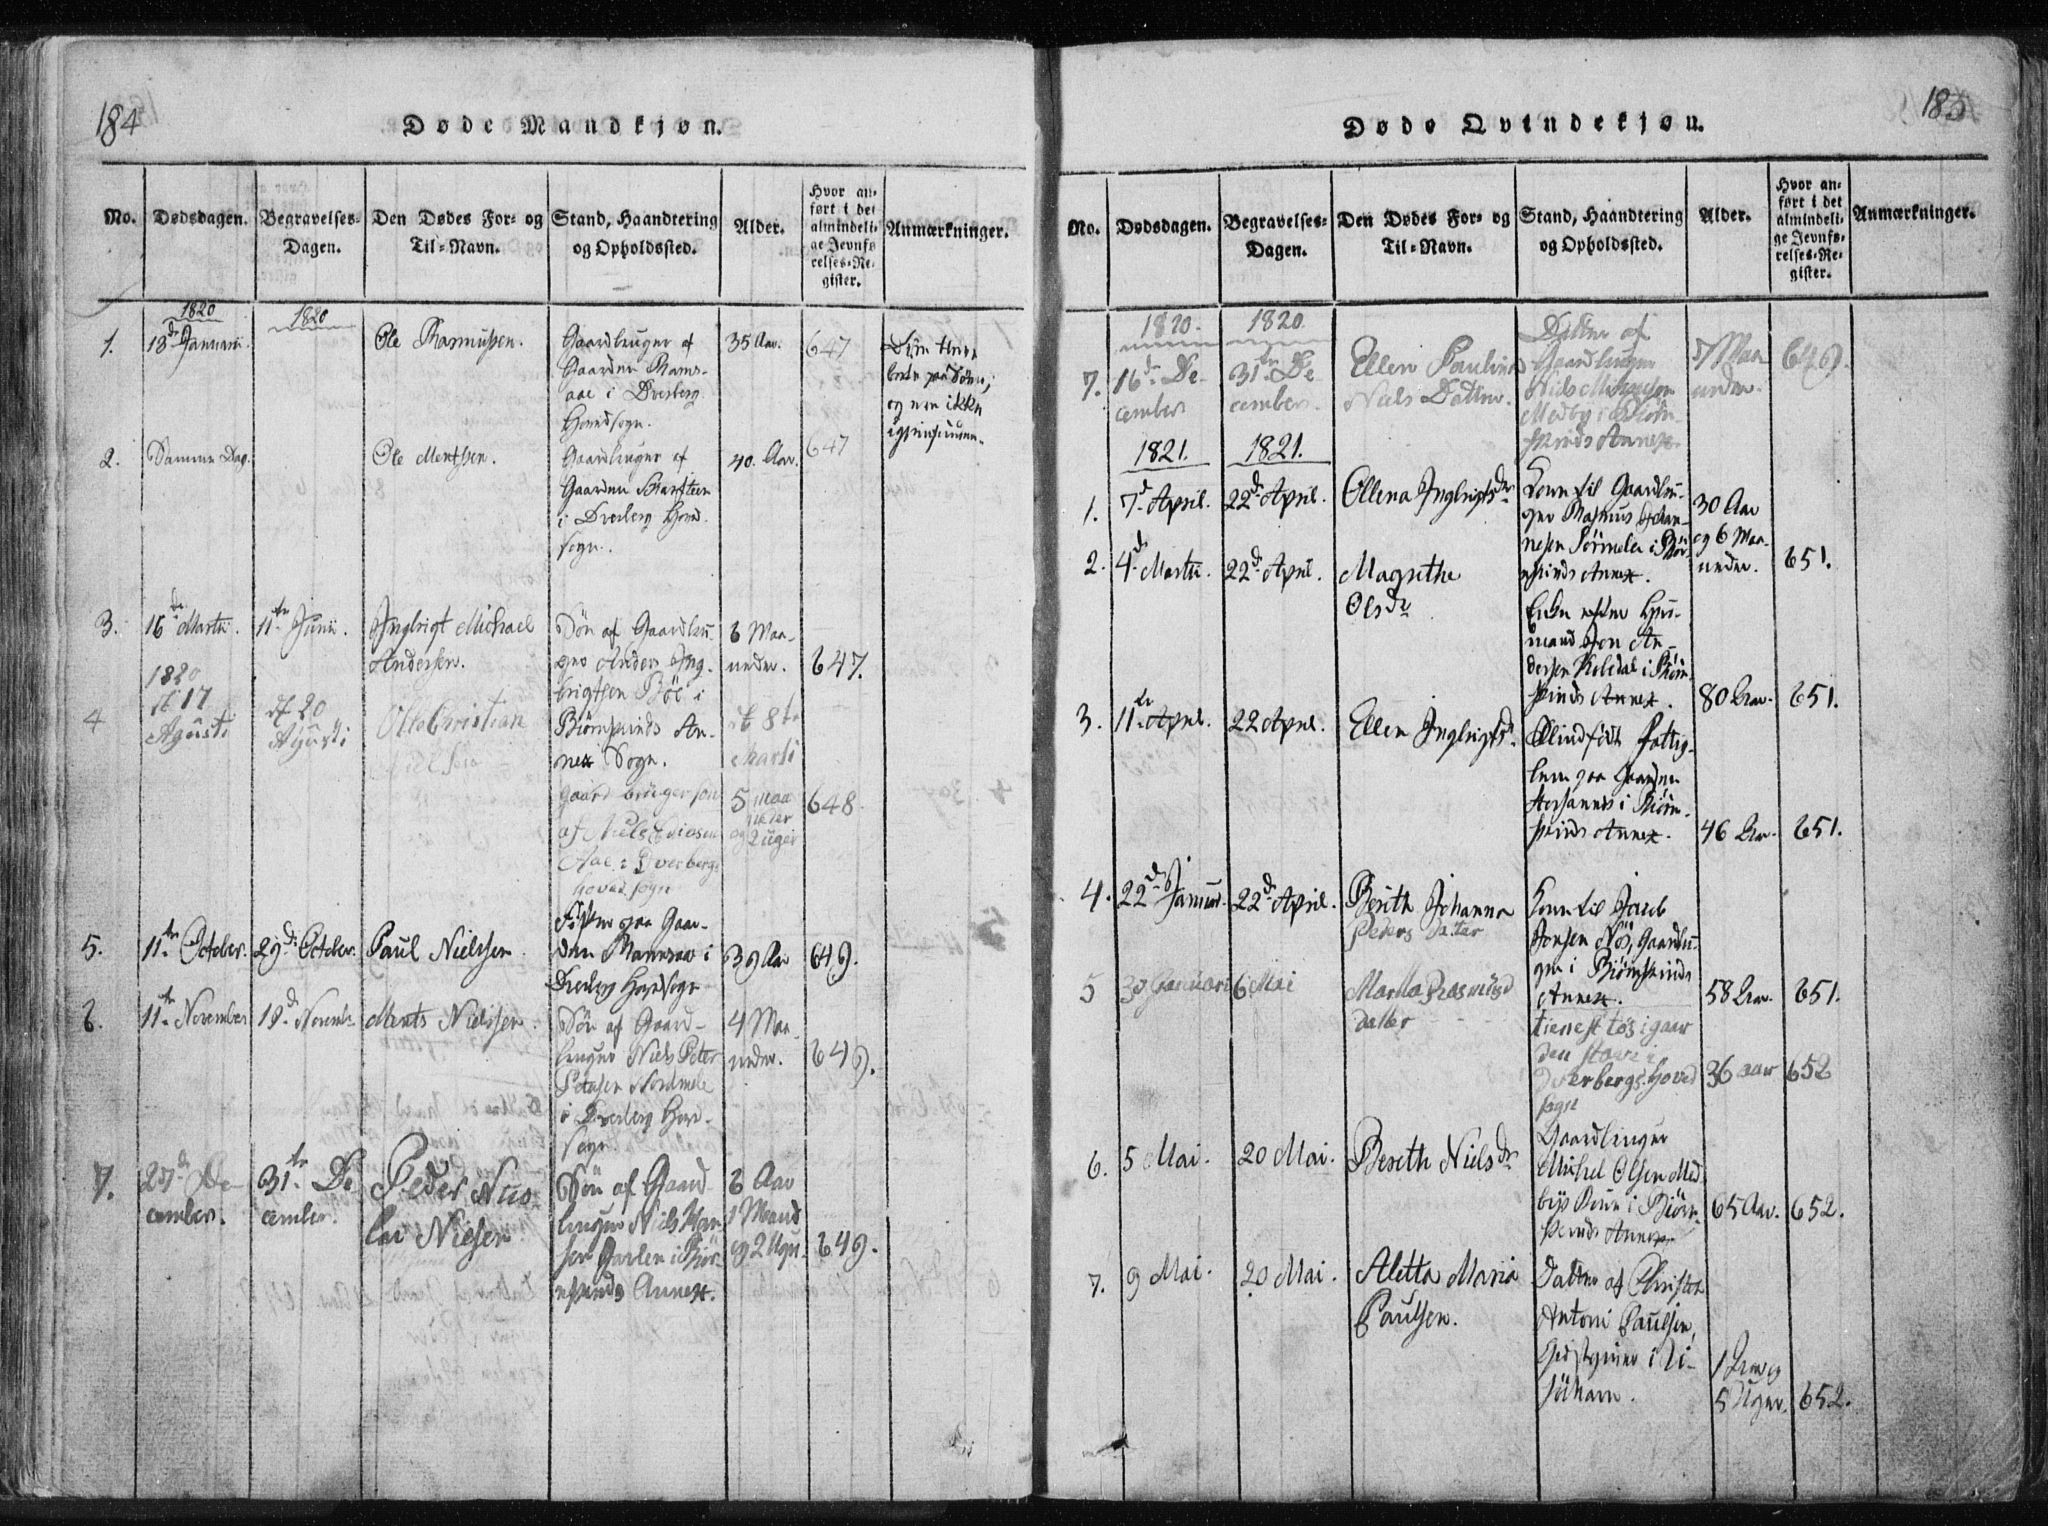 184
Døde Mandkjøn.
No.
Dødsdagen.
Begravelses-
Dagen.
Den Dødes For- og
Til-Navn.
Stand, Haandtering
og Opholdssted.
Alder.
Hvor an-
ført i det
almindeli-
ge Jevnfø-
relses-Re-
gister.
Anmærkninger.
1820
1820
1.
18de Januari.
Ole Rasmussen.
Gaardbruger af
Gaarden Rams-
aae i Dverberg
Hovedsogn.
35 Aar.
647
og ere ikke
igjenfundne.
2.
Samme Dag.
Ole Mentsen.
Gaardbruger af
Gaarden
i Dverberg Hoved-
sogn.
40. Aar.
647
3.
16de Martii.
11te Junii.
Ingbrigt Michael
Andersen.
Søn af Gaardbru-
ger Anders Ing-
brigtsen Böe i
Björnskinds An-
nex Sogn.
6 Maa-
neder.
647.
4
1820
d 17
Agusti
d 20
Agusti
Olle Christian
Nielsen
gaard bruger søn
af Niels
Aae i Dverbergs
hoved sogn
5 maa
neder
og 2 uger
648
5.
11te October.
29de October.
Paul Nielssen.
Fisker paa Gaar-
den Ramsaa i
Dverberg Hovedsogn
39 Aar
649.
6.
11te November
19de Novembr
Ments Nielssen.
Søn af Gaard-
bruger Niels Peter
Petersen Nordmele
i Dverberg Hoved-
sogn.
4 Maa-
neder.
649.
7.
27de De-
cember.
31te De
cember.
Peder Nico-
lai Nielsen
Søn af Gaard
bruger Niels Han
sen i Biør
nskinds Annex.
6 Aar
1 Maaned
og 2 Uger.
649.
185
Døde Qvindekjøn.
No.
Dødsdagen.
Begravelses-
Dagen.
Den Dødes For- og
Til-Navn.
Stand, Haandtering
og Opholdssted.
Alder.
Hvor an-
ført i det
almindeli-
ge Jevnfø-
relses-Re-
gister.
Anmærkninger.
1820.
1820.
7.
16de De-
cember
31te De
cember.
Ellen Paulina
Niels Datter.
Datter af
Gaardbruger
Niels
Medby i Biørn-
skinds Annex.
7 Maa
neder.
649.
1821.
1821.
1.
7de April.
22de April.
Ellena Ingbrigtsdr
Kone til Gaardbru-
ger Rasmus Johan-
nesen Sörmela i Biør-
nskinds Annex.
30 Aar
og 6 Maa-
neder.
651.
2.
4de Martii.
22de April.
Magrethe
Olsdr
Enke efter Huus-
mand Jon An-
dersen i Biørn-
skinds Annex.
80 Aar.
651.
3.
11te April.
22 April.
Ellen Ingbrigtsd.
Blindfödt Fattig-
lem paa Gaarden
i Biørn-
skinds Annex.
46 Aar.
651.
4.
22de Januar.
22de April.
Berith Johanna
Peders datter
Kone til Jacob
Jonsen Nös, Gaardbru-
ger i Biørnskinds
Annex.
58 Aar.
651.
5
30 Januari
6 Mai
Martha Rasmus
datter
tienest tøs i gaar
den Stave i
Dverbergs hoved
sogn
36 aar
652
6.
5 Mai.
20 Mai.
Bereth Nielsdr
Gaardbruger
Mikkel Olsen Med
bys Kone i Biørn
skinds Annex
65 Aar.
652.
7.
9 Mai.
20 Mai.
Aletta Maria
Paulsen.
Datter af Christen
Antoni Paulsen,
Giestgiver i Ri-
söihavn.
1 Aar og
5 Uger.
652.